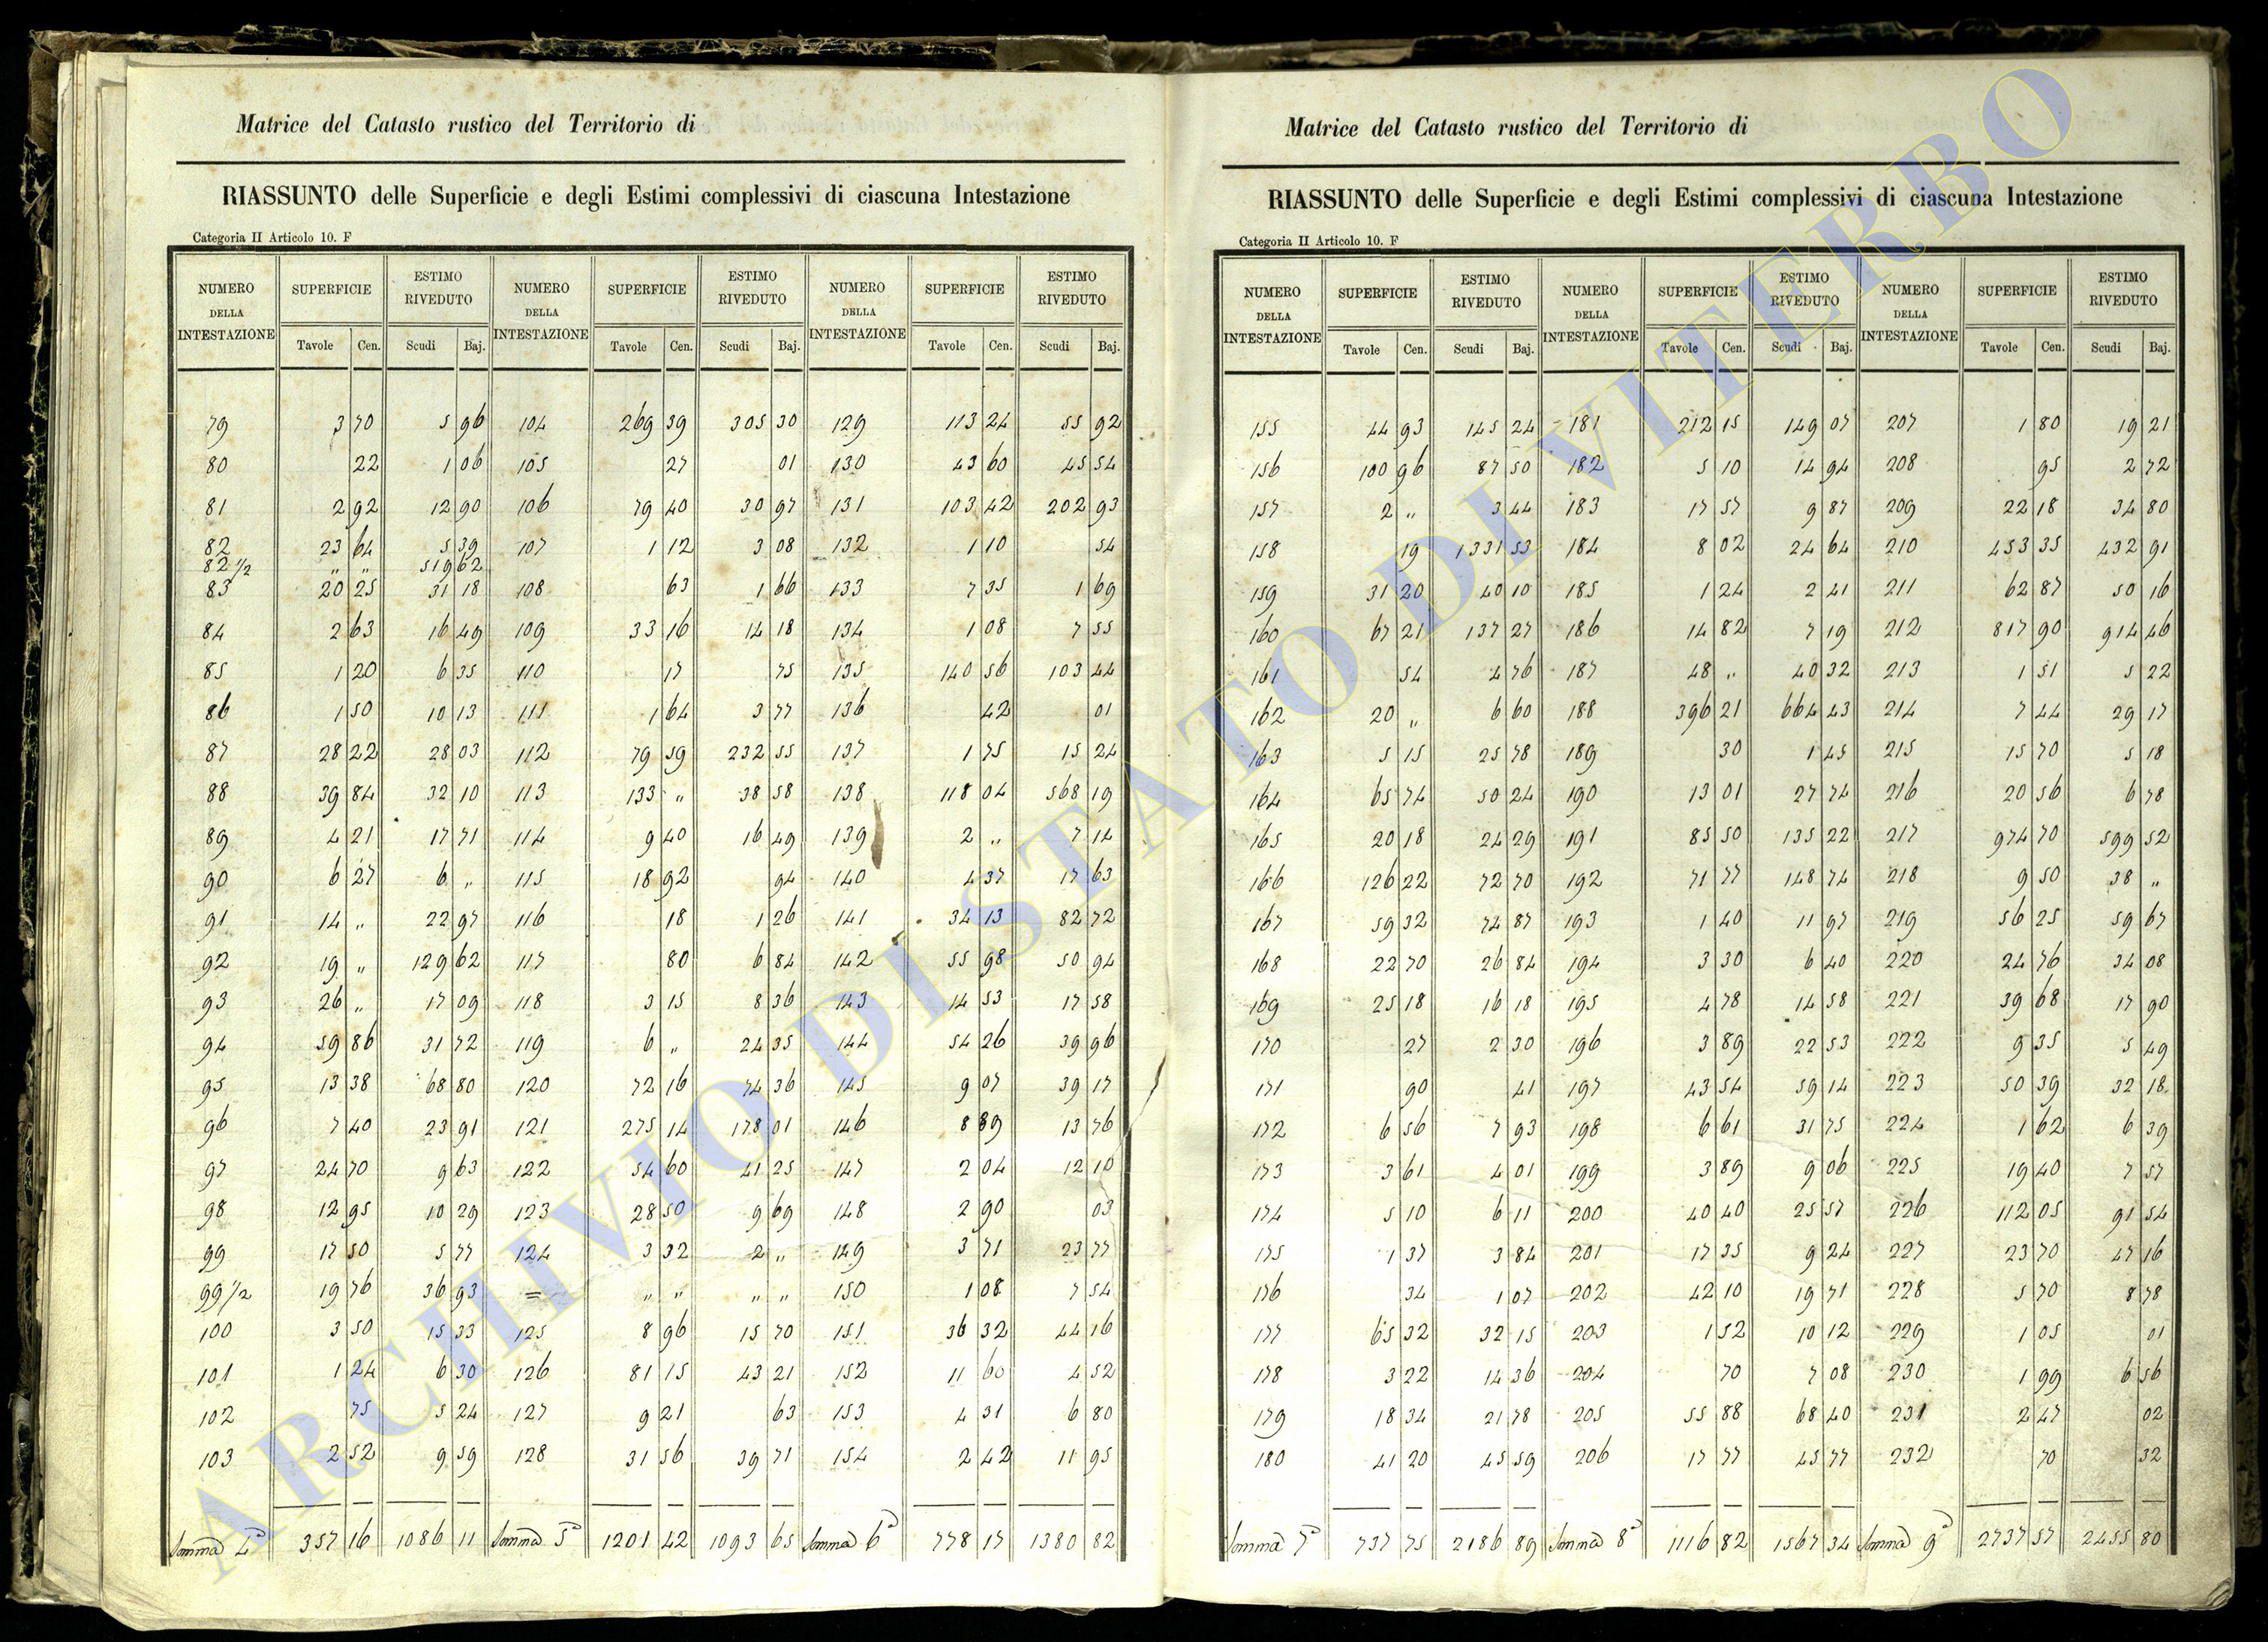 Matrice del Catasto rustico del Territorio di
RIASSUNTO delle Superficie e degli Estimi complessivi di ciascuna Intestazione
Categoria II Articolo 10. F
NUMERO DELLA INTESTAZIONE SUPERFICIE ESTIMO RIVEDUTO NUMERO DELLA INTESTAZIONE SUPERFICIE ESTIMO RIVEDUTO NUMERO DELLA INTESTAZIONE SUPERFICIE ESTIMO RIVEDUTO
Tavole Cen. Scudi Baj. Tavole Cen. Scudi Baj. Tavole Cen. Scudi Baj.
79 3 70 5 96 104 269 39 305 30 129 113 24 55 92
80 22 1 06 105 27 01 130 43 60 45 54
81 2 92 12 90 106 79 40 30 97 131 103 42 202 93
82 23 64 5 39 107 1 12 3 08 132 1 10 54
82 1/2 " " 519 62
83 20 25 31 18 108 63 1 66 133 7 35 1 69
84 2 63 16 49 109 33 16 14 18 134 1 08 7 55
85 1 20 6 35 110 17 75 135 140 56 103 44
86 1 50 10 13 111 1 64 3 77 136 42 01
87 28 22 28 03 112 79 59 232 55 137 1 75 15 24
88 39 84 32 10 113 133 " 38 58 138 118 04 568 19
89 4 21 17 71 114 9 40 16 49 139 2 " 7 14
90 6 27 6 " 115 18 92 94 140 4 37 17 63
91 14 " 22 97 116 18 1 26 141 34 13 82 72
92 19 " 129 62 117 80 6 84 142 55 98 50 94
93 26 " 17 09 118 3 15 8 36 143 14 53 17 58
94 59 86 31 72 119 6 " 24 35 144 54 26 39 96
95 13 38 68 80 120 72 16 74 36 145 9 07 39 17
96 7 40 23 91 121 275 14 178 01 146 8 89 13 76
97 24 70 9 63 122 54 60 41 25 147 2 04 12 10
98 12 95 10 29 123 28 50 9 69 148 2 90 03
99 17 50 5 77 124 3 32 2 " 149 3 71 23 77
99 1/2 19 76 36 93 = " " " " 150 1 08 7 54
100 3 50 15 33 125 8 96 15 70 151 36 32 44 16
101 1 24 6 30 126 81 15 43 21 152 11 60 4 52
102 75 5 24 127 9 21 63 153 4 31 6 80
103 2 52 9 59 128 31 56 39 71 154 2 42 11 95
Somma 4a 357 16 1086 11 Somma 5a 1201 42 1093 65 Somma 6a 778 17 1380 82
Matrice del Catasto rustico del Territorio di
RIASSUNTO delle Superficie e degli Estimi complessivi di ciascuna Intestazione
Categoria II Articolo 10. F
NUMERO DELLA INTESTAZIONE SUPERFICIE ESTIMO RIVEDUTO NUMERO DELLA INTESTAZIONE SUPERFICIE ESTIMO RIVEDUTO NUMERO DELLA INTESTAZIONE SUPERFICIE ESTIMO RIVEDUTO
Tavole Cen. Scudi Baj. Tavole Cen. Scudi Baj. Tavole Cen. Scudi Baj.
155 44 93 145 24 181 212 15 149 07 207 1 80 19 21
156 100 96 87 50 182 5 10 14 94 208 95 2 72
157 2 " 3 44 183 17 57 9 87 209 22 18 34 80
158 19 1331 53 184 8 02 24 64 210 453 35 432 91
159 31 20 40 10 185 1 24 2 41 211 62 87 50 16
160 67 21 137 27 186 14 82 7 19 212 817 90 914 46
161 54 4 76 187 48 " 40 32 213 1 51 5 22
162 20 " 6 60 188 396 21 664 43 214 7 44 29 17
163 5 15 25 78 189 30 1 45 215 15 70 5 18
164 65 74 50 24 190 13 01 27 74 216 20 56 6 78
165 20 18 24 29 191 85 50 135 22 217 974 70 599 52
166 126 22 72 70 192 71 77 148 74 218 9 50 38 "
167 59 32 74 87 193 1 40 11 97 219 56 25 59 67
168 22 70 26 84 194 3 30 6 40 220 24 76 34 08
169 25 18 16 18 195 4 78 14 58 221 39 68 17 90
170 27 2 30 196 3 89 22 53 222 9 35 5 49
171 90 41 197 43 54 59 14 223 50 39 32 18
172 6 56 7 93 198 6 61 31 75 224 1 62 6 39
173 3 61 4 01 199 3 89 9 06 225 19 40 7 57
174 5 10 6 11 200 40 40 25 57 226 112 05 91 54
175 1 37 3 84 201 17 35 9 24 227 23 70 47 16
176 34 1 07 202 42 10 19 71 228 5 70 8 78
177 65 32 32 15 203 1 52 10 12 229 1 05 01
178 3 22 14 36 204 70 7 08 230 1 99 6 56
179 18 34 21 78 205 55 88 68 40 231 2 47 02
180 41 20 45 59 206 17 77 45 77 232 70 32
Somma 7a 737 75 2186 89 Somma 8a 1116 82 1567 34 Somma 9a 2737 57 2455 80
ARCHIVIO DI STATO DI VITERBO